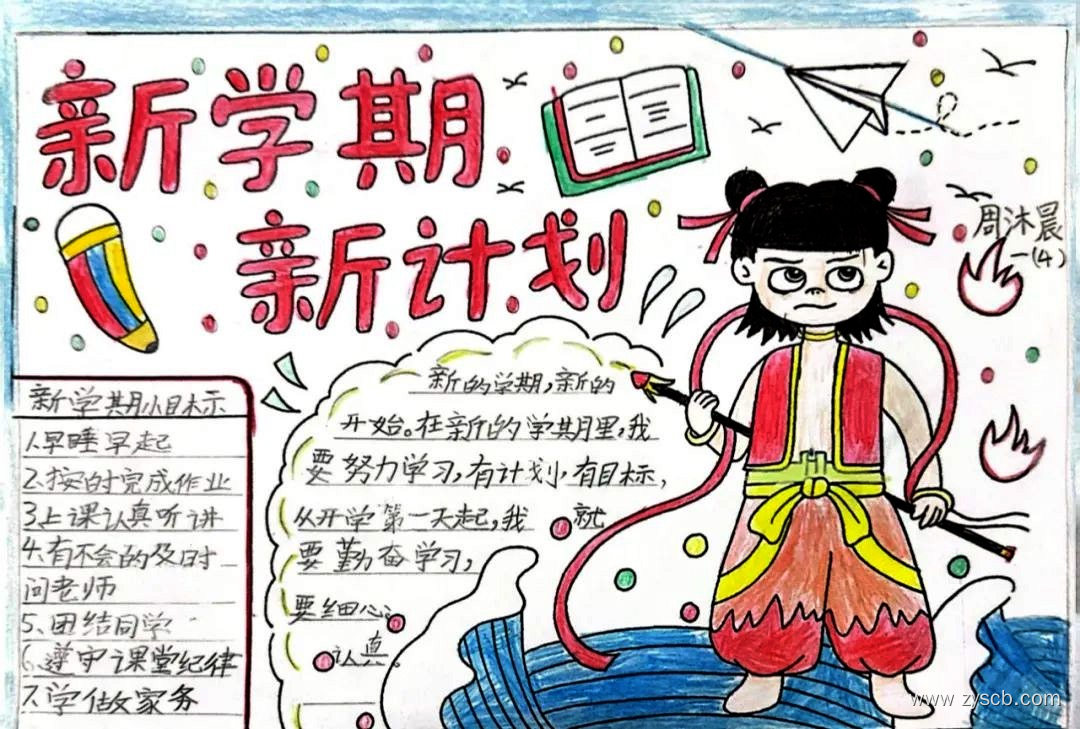 新学期
新计划
周沐晨
一(4)
新学期小目标
1.早睡早起
2.按时完成作业
3.上课认真听讲
4.有不会的及时
问老师
5.团结同学
6.遵守课堂纪律
7.学做家务
新的学期,新的
开始。在新的学期里,我
要努力学习,有计划,有目标,
从开学第一天起,我 就
要勤奋学习,
要细心。
认真。
www.zyscb.com